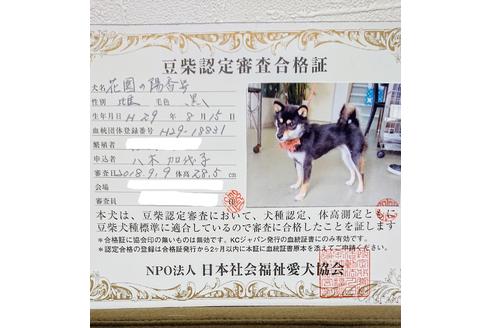 豆柴認定審査合格証
犬名 花園の陽香号
性別 雌 毛色 黒
生年月日 H29年8月15日
血統団体登録番号 H29-19831
繁殖者
申込者 八木 加代子
審査日 2018.9.9 体高 28.5 cm
会場
審査員
本犬は、豆柴認定審査において、犬種認定、体高測定ともに
豆柴犬種標準に適合しているので審査に合格したことを証します
*合格証に協会印の無いものは無効です。KCジャパン発行の血統証書にのみ有効です。
*認定合格の登録は合格証発行から2ヶ月以内に本証に血統証書原本を添えてご申請ください。
NPO法人 日本社会福祉愛犬協会